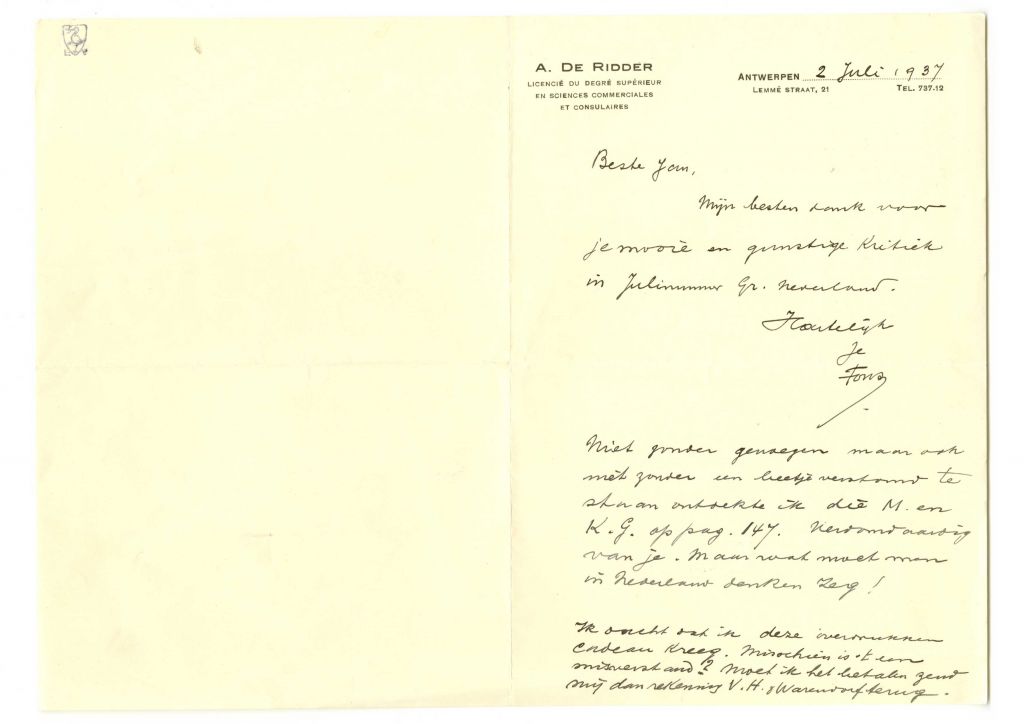 A. DE RIDDER
LICENCIÉ DU DEGRÉ SUPÉRIEUR
EN SCIENCES COMMERCIALES
ET CONSULAIRES
ANTWERPEN 2 Juli 1937
LEMMÉ STRAAT, 21 TEL. 737.12
Beste Jan,
Mijn besten dank voor
je mooie en gunstige Kritiek
in Julinummer Gr. Nederland.
Hartelijk
Je
Fons
Niet zonder genoegen maar ook
niet zonder een beetje verstomd te
staan ontdekte ik die M. en
K. G. op pag. 147. Verdomd aardig
van je. Maar wat moet men
in Nederland denken zeg!
Ik dacht dat ik deze overdrukken
cadeau kreeg. Misschien is 't een
misverstand? Moet ik het betalen zend
mij dan rekening V. H. & Warendorf terug.